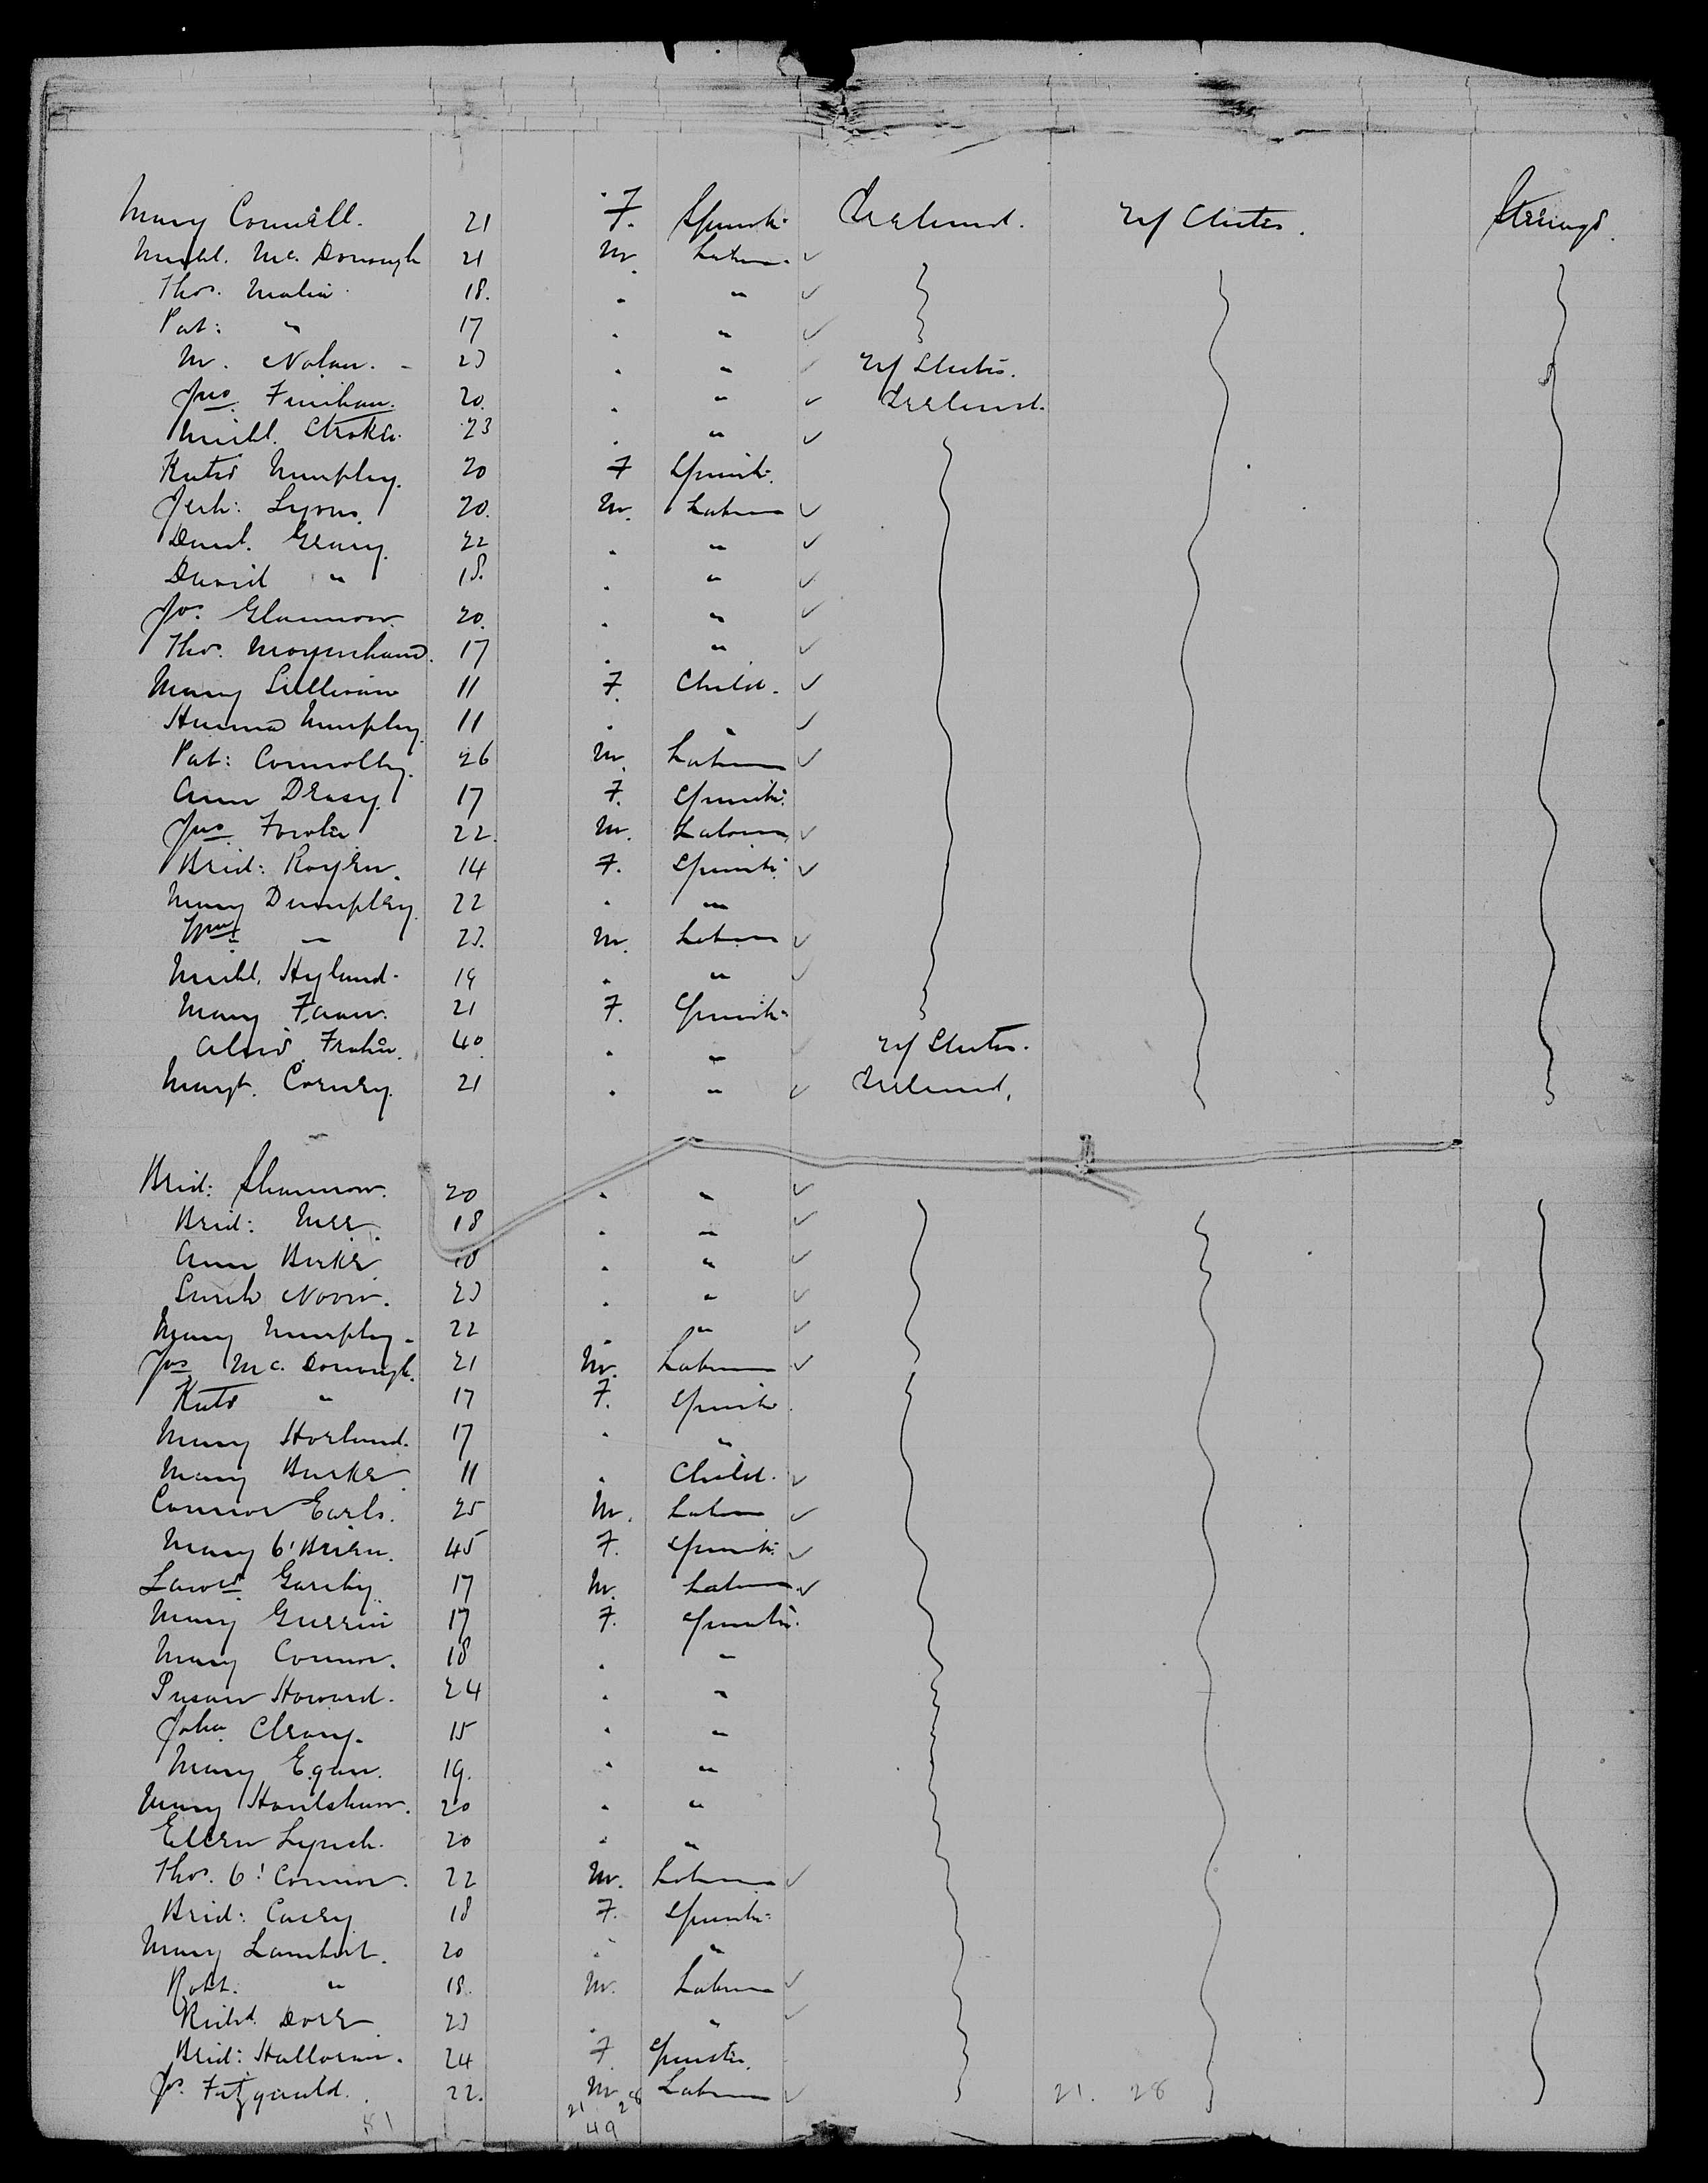 Mary Connell. 21 F. Spinstr. Ireland. U/ States. Steerage.
Michl. Mc. Donough 21 M. Labour. ✓
Thos. Malia 18. . " ✓
Pat: " 17 . " ✓
M. Nolan. - 23 . " ✓ U/ States.
Jno. Finihan. 20. . " ✓ Ireland.
Michl. Croker. 23 . " ✓
Kate Murphy. 20 F Spinstr.
Jerh: Lyons. 20. M. Labour ✓
Danl. Geary. 22 . " ✓
David " 18. . " ✓
Jos. Glannon. 20. . " ✓
Thos. 17 . " ✓
Mary Sullivan 11 F. Child. ✓
Hanna Murphy. 11 . " ✓
Pat: Connolly. 26 M. Labour ✓
Ann Deasy. 17 F. Spinstr.
Jno. Fowler 22. M. Labour ✓
Brid: Royen. 14 F. Spinstr. ✓
Mary Dumphey. 22 . "
" 23. M. Labour ✓
Michl. Hyland. 19 . " ✓
Mary 21 F. Spinstr.
40. . " U/ States.
Margt. Corney. 21 . " ✓ Ireland.
Brid: Shannon. 20 . " ✓
Brid: Mee. 18 . " ✓
Ann Burke 18 . " ✓
Sarah Noon. 23 . " ✓
Mary Murphy. 22 . " ✓
Jas. Mc. Donough. 21 M. Labour ✓
Kate " 17 F. Spinstr.
Mary Horland. 17 . "
Mary Burke 11 . Child. ✓
Connor Earls. 25 M. Labour ✓
Mary O'Brien. 45 F. Spinstr. ✓
Lawce. 17 M. Labour ✓
Mary Guerrin 17 F. Spinster.
Mary Connor. 18 . "
Susan Howard. 24 . "
Joha. Cleary. 15 . "
Mary Egan. 19. . "
Mary 20 . "
Ellen Lynch. 20 . "
Thos. O'Connor. 22 M. Labour ✓
Brid: Casey 18 F. Spinstr.
Mary Lambert. 20 . "
Robt. " 18. M. Labour ✓
Richd. Dore 23 . " ✓
Brid: Halloran. 24 F. Spinster.
Js. Fitzgerald. 22. M. Labour ✓ 21. 28
81 21 28
49